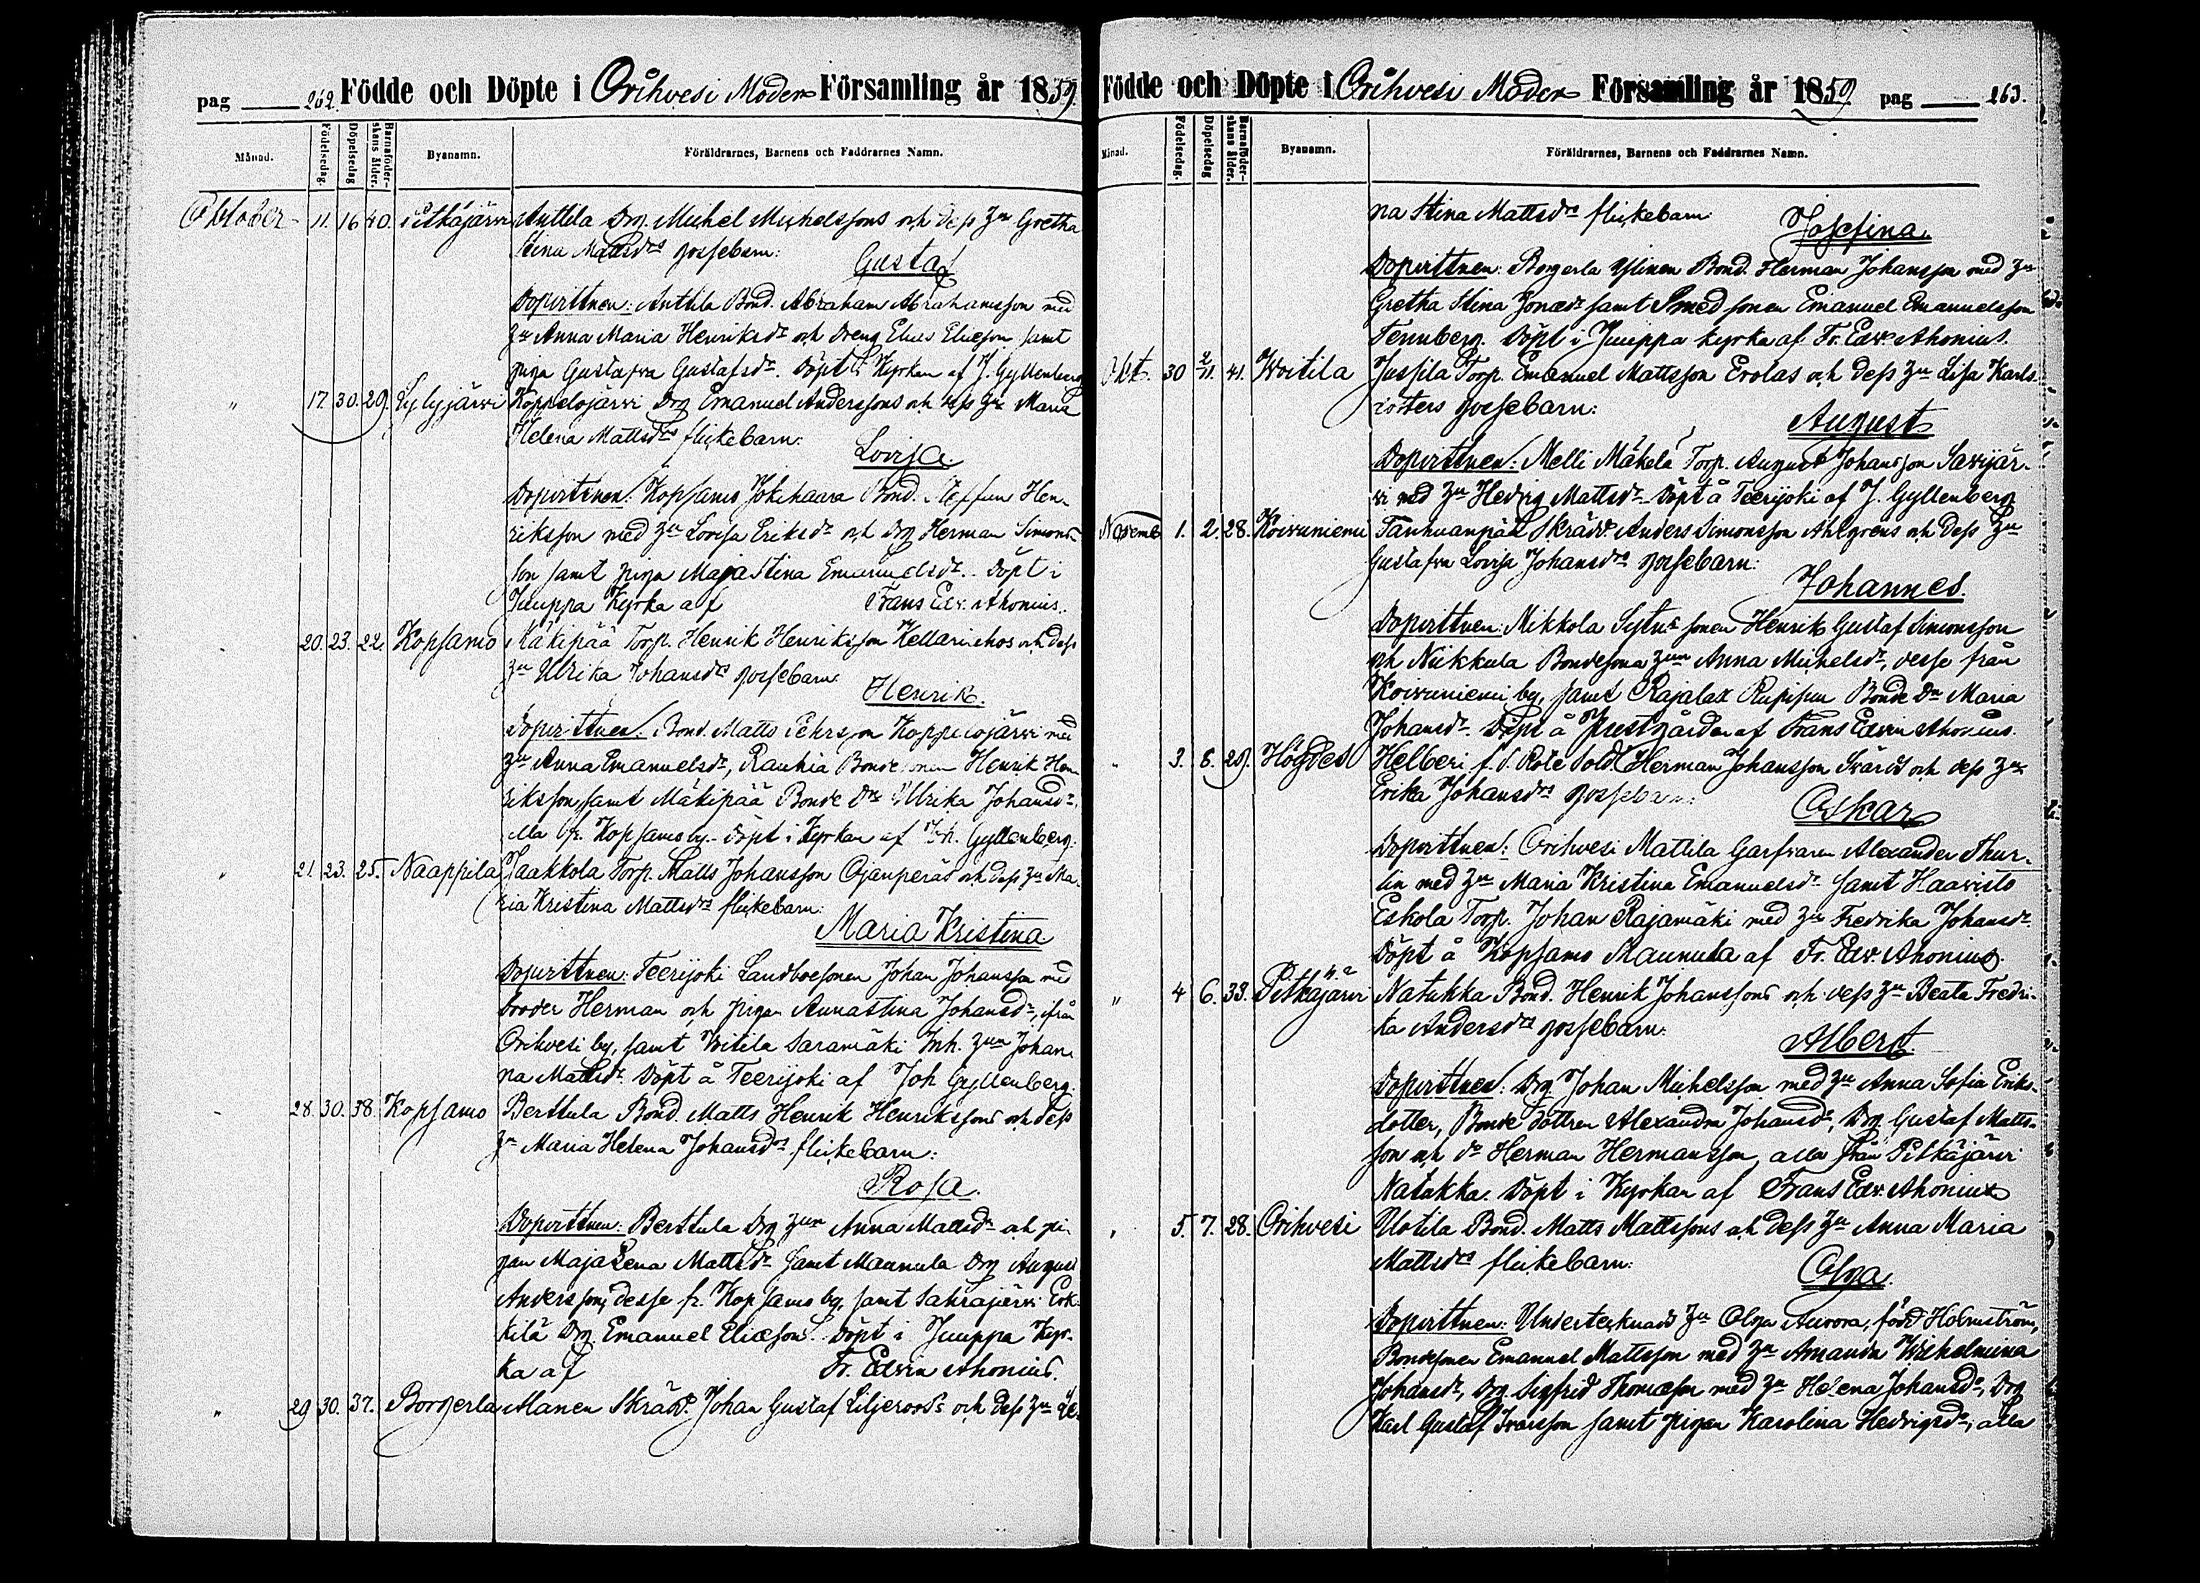 pag 262. Födde och Döpte i Orihvesi Moder Församling år 1859.
Månad. Födelsedag. Döpelsedag Barnaföderskans ålder. Byanamn. Föräldrarnes, Barnens och Faddrarnes Namn.
Oktober 11. 16 40. Pitkäjärvi Anttila Drg. Michel Michelssons och dess Hu Gretha
Stina Mattsdrs gossebarn:
Gustaf
Dopvittnen: Anttila Bond. Abraham Abrahamsson med
Hu Anna Maria Henriksdr och Dreng Elias Eliesson samt
pigan Gustafva Gustafsdr. Döpt i Kyrkan af J. Gyllenberg
" 17. 30. 29. Lylyjärvi Koppelojärvi Drg Emanuel Anderssons och dess Hu Maria
Helena Mattsdrs flickebarn:
Lovisa.
Dopvittnen: Kopsamo Jokihaara Bond. Steffan Hen-
riksson med Hu Lovisa Eriksdr och Drg Herman Simons-
son samt pigan Maja Stina Emanuelsdr. Döpt i
Juuppa Kyrka af Frans Edv. Ahonius.
20. 23. 22. Kopsamo Mäkipää Torp. Henrik Henriksson Kellarinehos och dess
Hu Ulrika Johansdrs gossebarn:
Henrik.
Dopvittnen: Bond. Matts Pehrsson Koppelojärvi med
Hu Anna Emanuelsdr, Rauhia Bondesonen Henrik Hen-
riksson, samt Mäkipää Bonde Dr Ulrika Johansdr,
alla fr. Kopsamo by. Döpt i Kyrkan af Joh. Gyllenberg.
" 21. 23. 25. Naappila Jaakkola Torp. Matts Johansson Ojanperäs och dess Hu Ma-
ria Kristina Mattsdrs flickebarn:
Maria Kristina
Dopvittnen: Teerijoki Landboesonen Johan Johansson med
broder Herman och pigan Annastina Johansdr, ifrån
Orihvesi by, samt Voitila Saramäki Inh. Hun Johan-
na Mattsdr. Döpt å Teerijoki af Joh Gyllenberg.
28. 30. 38. Kopsamo Berttula Bond. Matts Henrik Henrikssons och dess
Hu Maria Helena Johansdrs flickebarn:
Rosa.
Dopvittnen: Berttula Drg Hun Anna Mattsdr och pi-
gan Maja Lena Mattsdr samt Maunula Drg August
Andersson, desse fr. Kopsamo by, samt Sahrajärvi Erk-
kilä Drg Emanuel Elieson. Döpt i Juuppa Kyr-
ka af Fr. Edvin Ahonius.
" 29 30. 37. Borgerla Alanen Skrädd. Johan Gustaf Liljeroos's och dess Hu Le-
Födde och Döpte i Orihvesi Moder Församling år 1859. pag 263.
Månad. Födelsedag. Döpelsedag Barnaföderskans ålder. Byanamn. Föräldrarnes, Barnens och Faddrarnes Namn.
na Stina Mattsdrs flickebarn:
Josefina.
Dopvittnen: Borgerla Yllinen Bond. Herman Johansson med Hu
Gretha Stina Jonædr samt Smed sonen Emanuel Emanuelsson
Tennberg. Döpt i Juuppa kyrka af Fr. Edv. Ahonius.
Okt. 30 2/11. 41. Voitila Jussila Torp. Emanuel Mattsson Erolas och dess Hu Lisa Karls-
dotters gossebarn:
August
Dopvittnen: Melli Mäkelä Torp. August Johansson Savijär-
vi med Hu Hedvig Mattsdr. Döpt å Teerijoki af J. Gyllenberg
Novemb 1. 2. 28. Koivuniemi Tanhuanpää Skrädd. Anders Simonsson Ahlgrens och dess Hu
Gustafva Lovisa Johansdrs gossebarn:
Johannes.
Dopvittnen: Mikkola Sytns sonen Henrik Gustaf Simonsson
och Niekkula Bondesona Hun Anna Michelsdr, desse från
Koivuniemi by, samt Rajalax Bonde Dr Maria
Johansdr. Döpt å Prestgården af Frans Edvin Ahonius.
3. 8. 29. Högdes Helberi f. d. Rote Sold. Herman Johansson Svärds och dess Hu
Erika Johansdrs gossebarn:
Oskar
Dopvittnen: Orihvesi Mattila Garfvaren Alexander Thur-
lin med Hu Maria Kristina Emanuelsdr samt Haavisto
Eskola Torp. Johan Rajamäki med Hu Fredrika Johansdr.
Döpt å Kopsamo Maunula af Fr. Edv. Ahonius.
" 4 6. 33. Pitkäjärvi Natukka Bond. Henrik Johanssons och dess Hu Beata Fredri-
ka Andersdrs gossebarn:
Albert.
Dopvittnen: Drg Johan Michelsson med Hu Anna Sofia Eriks-
dotter, Bonde dottren Alexandra Johansdr, Drg Gustaf Matts-
son och do Herman Hermansson, alla från Pitkäjärvi
Natukka. Döpt i Kyrkan af Frans Edv. Ahonius
" 5. 7. 28. Orihvesi Uotila Bond. Matts Mattssons och dess Hu Anna Maria
Mattsdrs flickebarn:
Olga.
Dopvittnen: Undertecknads Hu Olga Aurora, född Holmström,
Bondesonen Emanuel Mattsson med Hu Amanda Wilhelmina
Johansdr, Drg Sigfrid Thomasson med Hu Helena Johansdr, Drg
Karl Gustaf Ivarsson samt pigan Karolina Hedvigsdr, alla